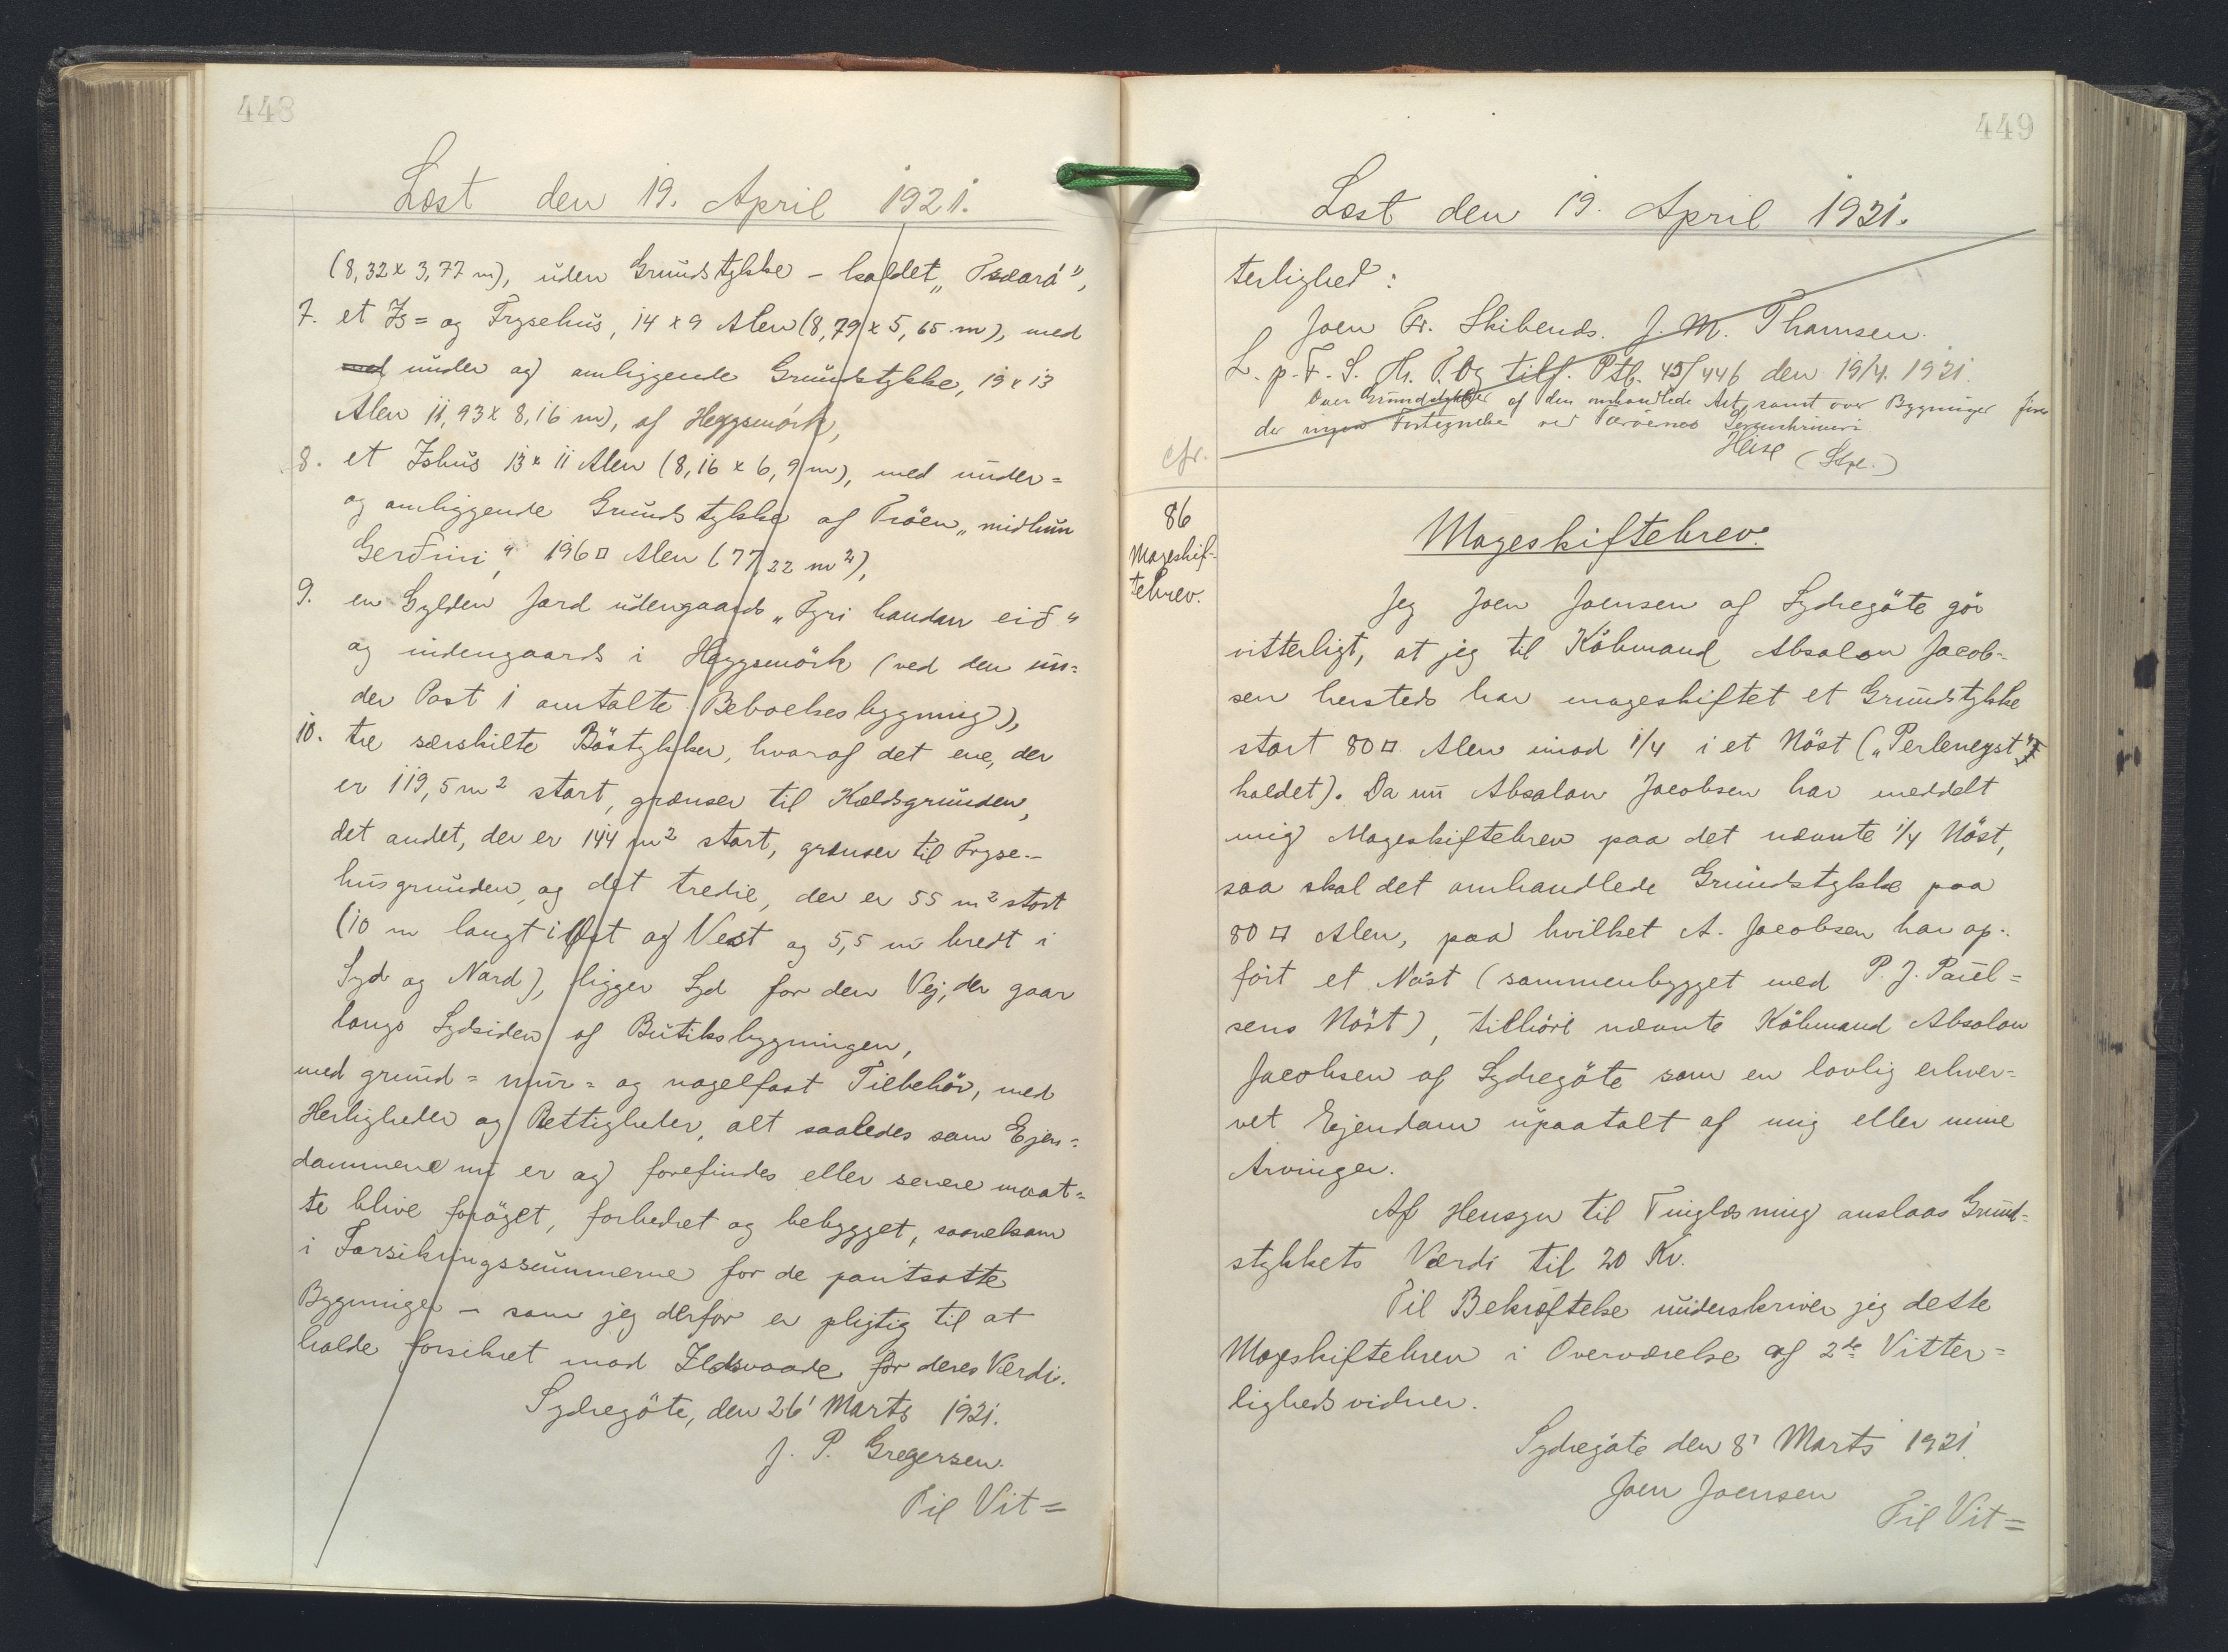 448
Læst den 19. April 1921.
(8,32 x 3,77 m), uden Grundstykke - kaldet
7. et Is= og Frysehus, 14 x 9 Alen (8,79 x 5,65 m), med
med under og omliggende Grundstykke, 19 x 13
Alen 11,93 x 8,16 m), af Heggsmörk,
8. et Ishus 13 x 11 Alen (8,16 x 6,9 m), med under=
og omliggende Grundstykke af Tröen „miðkun
Gerðini," 196 □ Alen (77,22 m²),
9. en Gylden Jord udengaards „Fyri handan eið"
og indengaards i Heggsmörk (ved den un=
der Post 1 omtalte Beboelsesbygning),
10. tre særskilte Böstykker, hvoraf det ene, der
er 119,5 m² stort, grænser til Kældsgrunden,
det andet, der er 144 m² stort, grænser til Fryse-
husgrunden, og det tredie, der er 55 m² stort
(10 m langt i Øst og Vest og 5,5 m bredt i
Syd og Nord), ligger Syd for den Vej, der gaar
langs Sydsiden af Butiksbygningen,
med grund= mur= og nagelfast Tilbehör, med
Herligheder og Rettigheder, alt saaledes som Ejen=
dommene nu er og forefindes eller senere maat=
te blive foröget, forbedret og bebygget, saavelsom
i Forsikringssummerne for de pantsatte
Bygninger - som jeg derfor er pligtig til at
holde forsikret mod Ildsvaade for deres Værdi.
Sydregöte, den 26' Marts 1921.
J. P. Gregersen.
Til Vit=
449
Læst den 19. April 1921.
terlighed:
Joen Fr. Skibends. J. M. Thomsen.
L. p. F. S. Hr. T. Og tilf. Ptb. 45/446 den 19/4. 1921.
Over Grundstykker af den omhandlede Art, samt over Bygninger fin
der ingen Fortegnelse ved Færöernes Sorenskriveri
Heise (Stpl.)
cfr.
86
Mageskif-
tebrev.
Mageskiftebrev.
Jeg Joen Joensen af Sydregöte gör
vitterligt, at jeg til Köbmand Absalon Jacob-
sen hersteds har mageskiftet et Grundstykke
stort 80 □ Alen imod 1/4 i et Nöst („Perleneyst"
kaldet). Da nu Absalon Jacobsen har meddelt
mig Mageskiftebrev paa det nævnte 1/4 Nöst,
saa skal det omhandlede Grundstykke paa
80 □ Alen, paa hvilket A. Jacobsen har op-
fört et Nöst (sammenbygget med P. J. Paul=
sens Nöst), tilhöre nævnte Köbmand Absalon
Jacobsen af Sydregöte som en lovlig erhver=
vet Ejendom upaatalt af mig eller mine
Arvinger.
Af Hensyn til Tinglæsning anslaas Grund=
stykkets Værdi til 20 Kr.
Til Bekræftelse underskriver jeg dette
Mageskiftebrev i Overværelse af 2de Vitter=
lighedsvidner.
Sydregöte den 8' Marts 1921.
Joen Joensen
Til Vit=